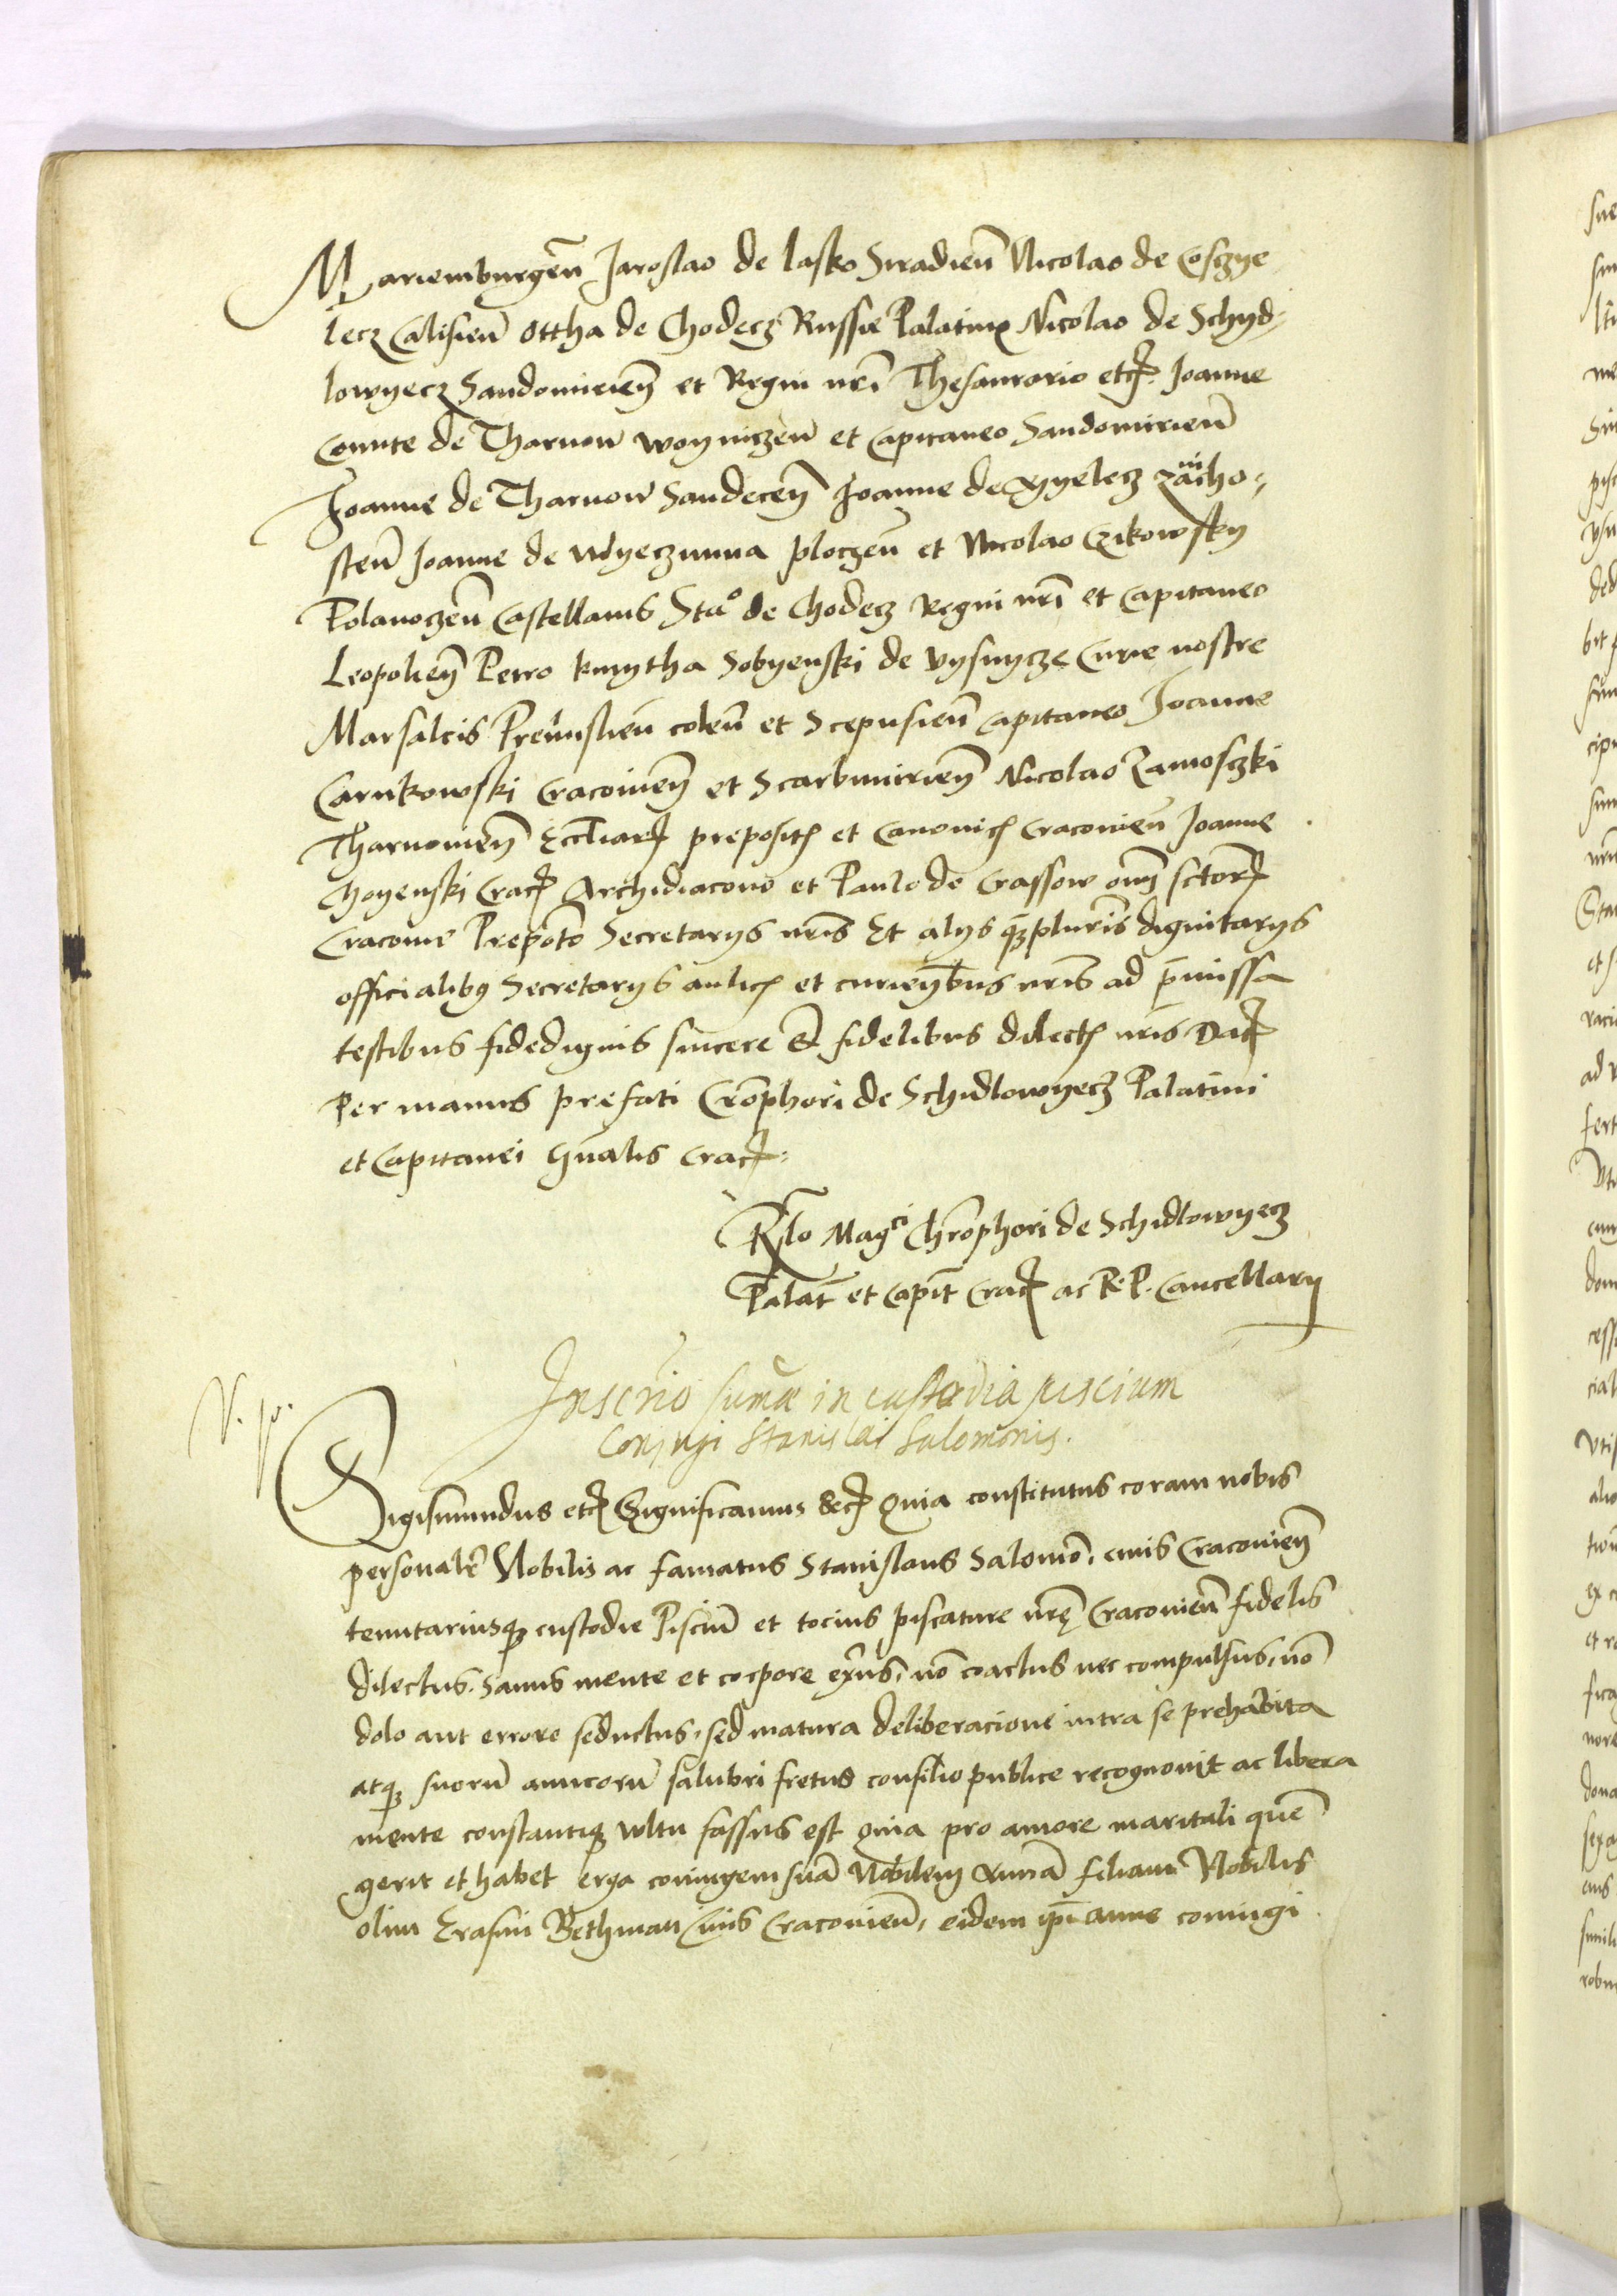 Mariemburgeñ Jaroslao de lasko Siradieñ Nicolao de Cosczye
lecz Calisieñ Ottha de Chodecz Russie Palatinis Nicolao de Schyd-
lowyecz Sandomirieñ et Regni nrĩ Thesaurario etc̃ Joanne
Comite de Tharnow woyniczeñ et Capitaneo Sandomirieñ
Joanne de Tharnow Sandeceñ Joanne de Pyelecz zawicho-
steñ Joanne de Wyeczwnna ploczeñ et Nicolao Czikowsky
Polanoczeñ Castellanis Stao de Chodecz Regni nrĩ et Capitaneo
Leopolieñ Petro kmytha Sobyenski de Vysnycze Curie nostre
Marsalcis Premislieñ coleñ et Scepusieñ Capitaneo Joanne
Carnkowski Cracovieñ et Scarbimirieñ Nicolao Zamosczki
Tharnovieñ Eccliar̃ prepositis et Canonicis Cracovieñ Joanne
Choyenski Crac̃ Archidiacono et Paulo de Crassow om̃ sctor̃
Cracovie Prepoto Secretarys nrĩs Et alys q̃pluris dignitarys
officialibus Secretarys aulicis et curieñbus nrĩs ad p̃missa
testibus fidedignis sincere et fidelibus dilectis nrĩs Dat̃
Per manus prefati Crõphori de Schidlowyecz Palatini
et Capitanei gñalis Crac̃
Rlo Magci Chrõphori de Schidlowyecz
Palat̃ et Capit̃ Crac̃ ac R. P. Cancellary
Inscrio sum̃ae in custodia piscium
Conjugi Stanislai Salomonis.
V. p.
Sigismundus etc̃ Significamus etc̃ Quia constitutus coram nobis
personalr̃ Nobilis ac famatus Stanislaus Salomõ, civis Cracovieñ
tenutariusq; custodie Pisciũ et tocius piscature nrẽ Cracovieñ fidelis
dilectus. Sanus mente et corpore exñs, nõ coactus nec compulsus, nõ
dolo aut errore seductus, sed matura deliberacione intra se prehabita
atq; suorũ amicorũ salubri fretus consilio publice recognovit ac libera
mente constantiq; vltu fassus est quia pro amore maritali quẽ
gerit et habet erga coniugem suã Nobilem Annã filiam Nobilis
olim Erasmi Bethman civis Cracovieñ, eidem ip̃i anne coniugi